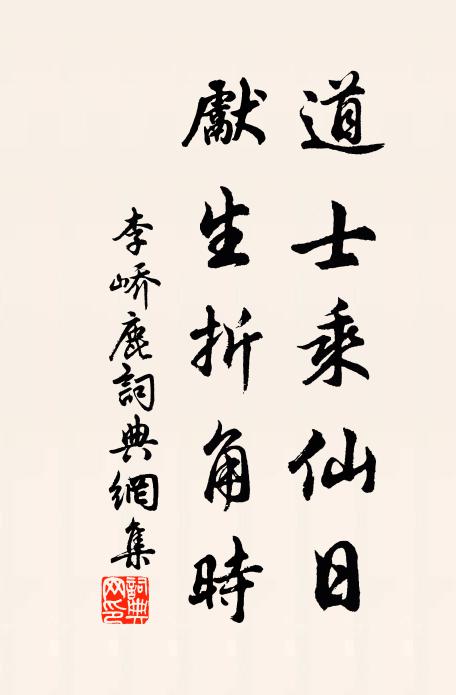 道士乘仙日
獻生折角時
李峤鹿詞典網集
詞典
网印